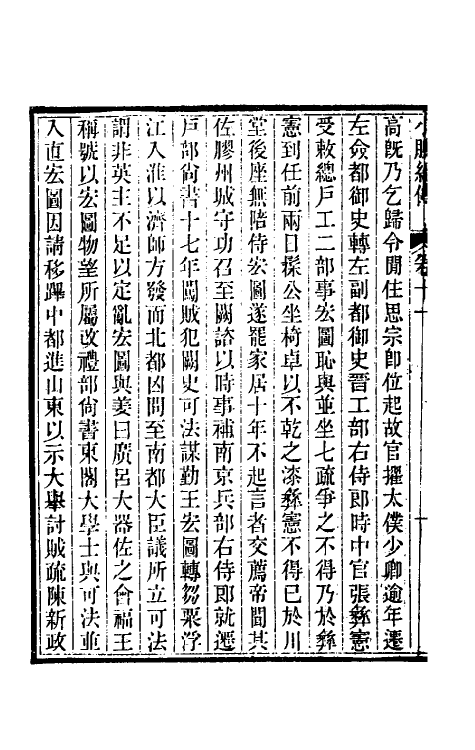 高既乃乞歸令閒住思宗卽位起故官擢太僕少卿逾年遷
左僉都御史轉左副都御史晉工部右侍郞時中官張彝憲
受敕總戶工二部事宏圖恥與並坐七疏爭之不得乃於彝
憲到任前兩日髹公坐椅卓以不乾之漆彝憲不得已於川
堂後座無陪侍宏圖遂罷家居十年不起言者交薦帝聞其
佐膠州城守功召至關諮以時事補南京兵部右侍郞就遷
戶部尙書十七年闖賊犯闕史可法謀勤王宏圖轉芻粟浮
江入淮以濟師方發而北都凶問至南都大臣議所立可法
謂非英主不足以定亂宏圖與姜曰廣呂大器佐之會福王
稱號以宏圖物望所屬改禮部尙書東閣大學士與可法並
入直宏圖因請移蹕中都進山東以示大舉討賊疏陳新政